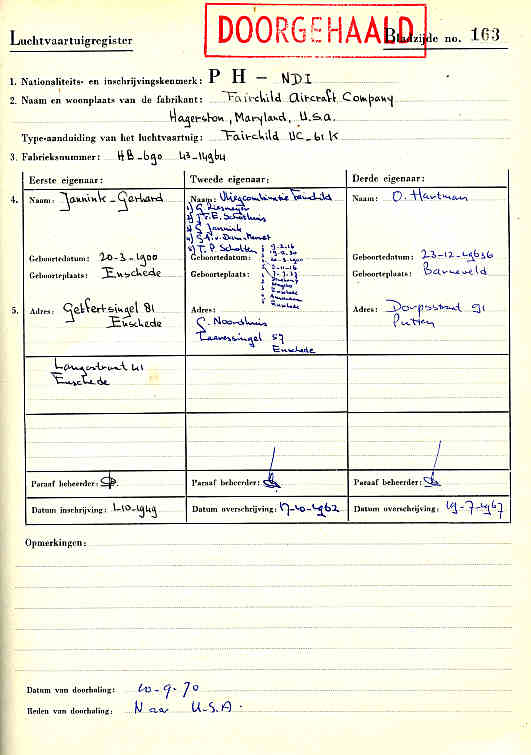 DOORGEHAALD
Luchtvaartuigregister Bladzijde no. 163
1. Nationaliteits- en inschrijvingskenmerk: PH - NDI
2. Naam en woonplaats van de fabrikant: Fairchild Aircraft Company
Hagerston, Maryland, U.S.A.
Type-aanduiding van het luchtvaartuig: Fairchild UC-61K
3. Fabrieksnummer: HB-690 43-14964
Eerste eigenaar: Tweede eigenaar: Derde eigenaar:
4. Naam: Jannink - Gerhard Naam: Vliegcombinatie Fairchild Naam: O. Hartman
G. Jannink
T. P. Scholten
Geboortedatum: 20-3-1900 Geboortedatum: Geboortedatum: 23-12-1936
Geboorteplaats: Enschede Geboorteplaats: Geboorteplaats: Barneveld
5. Adres: Getfertsingel 81 Adres: Adres: Dorpsstraat 91
Enschede G. Noordhuis Putten
singel 57
Enschede
Langestraat 41
Enschede
Paraaf beheerder: Paraaf beheerder: Paraaf beheerder:
Datum inschrijving: 1-10-1949 Datum overschrijving: 17-10-1962 Datum overschrijving: 19-7-1967
Opmerkingen:
Datum van doorhaling: 10-9-70
Reden van doorhaling: Naar U.S.A.